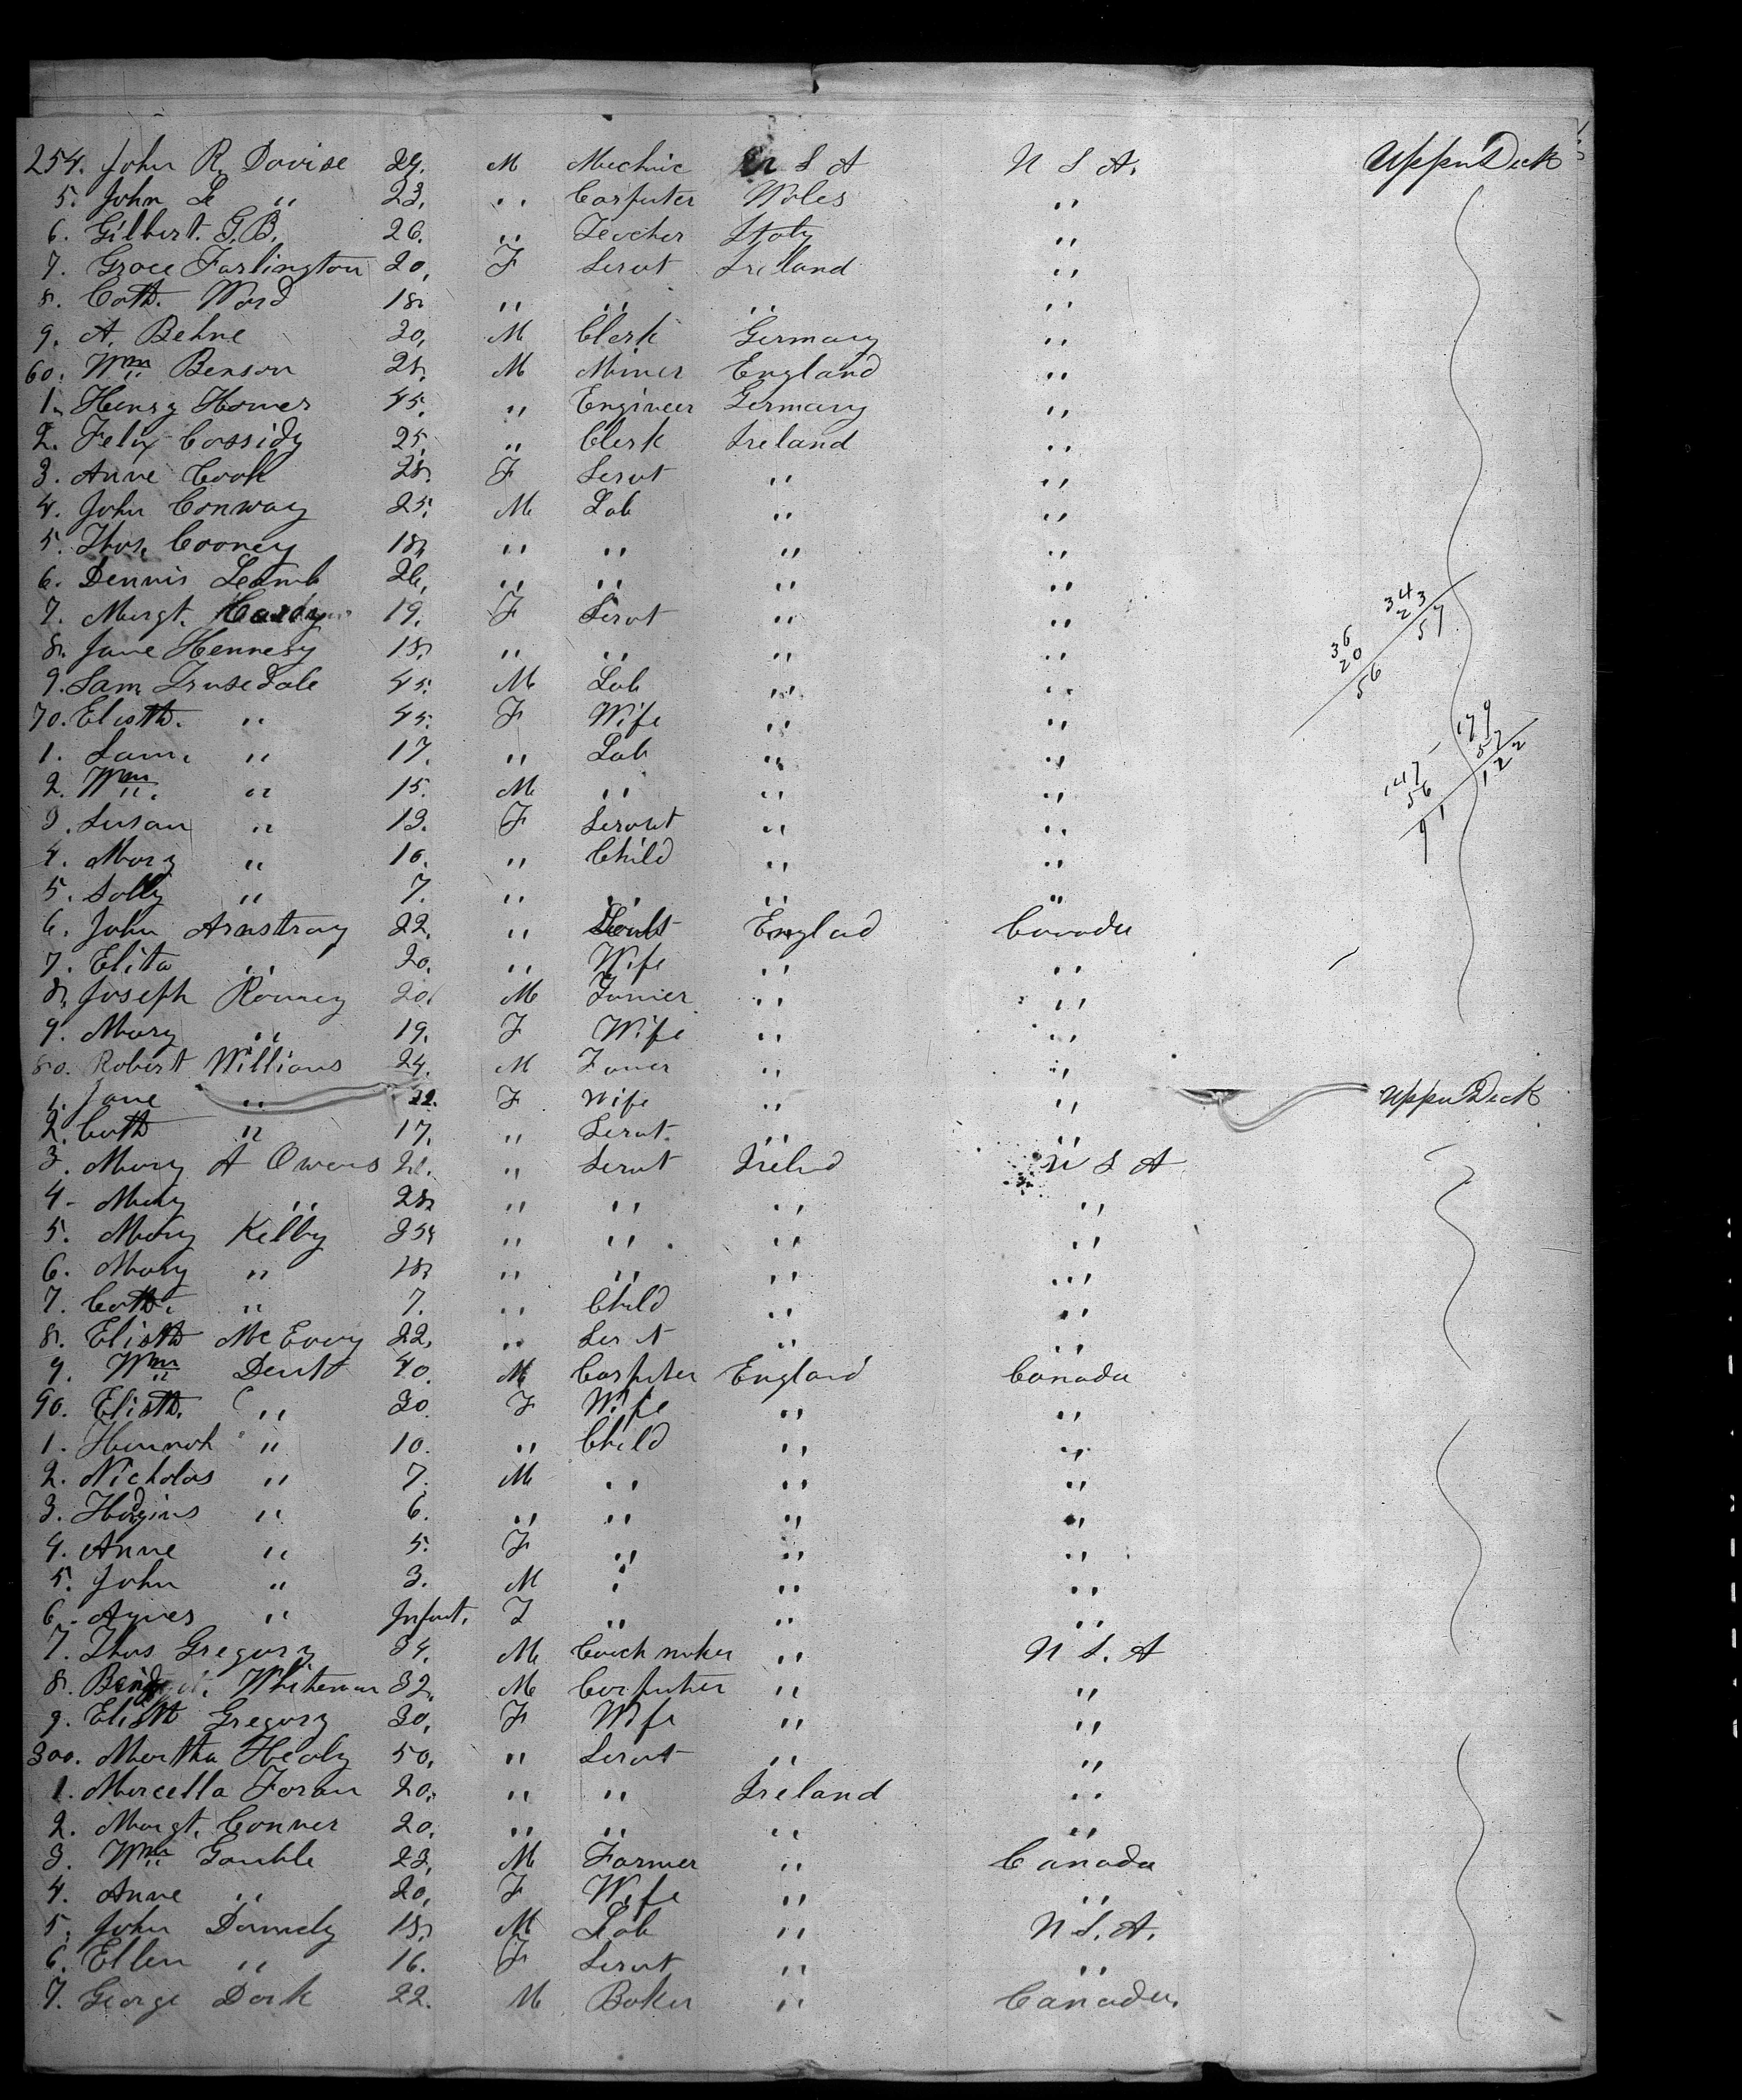 254. John R. Davise 29. M Mechnic U S A U S A. Upper Deck
5. John L " 23. " Carpnter Wales "
6. Gilbert. G.B. 26. " Teacher Italy "
7. Grace Farlington 20. F Servt Ireland "
8. Cath. Ward 18. " " " "
9. A. Behne 20. M Clerk Germany "
60. Wm Benson 28. M Miner England "
1. Henry Homer 45. " Engineer Germany "
2. Felix Cassidy 25. " Clerk Ireland "
3. Anne Cook 28. F Servt " "
4. John Conway 25. M Lab " "
5. Thos. Cooney 18. " " " "
6. Dennis Leamb 26. " " " "
7. Margt. 19. F Servt " "
8. Jane Hennesy 18. " " " "
9. Sam Trusedale 45. M Lab " "
70. Elisth. " 45. F Wife " "
1. Sam. " 17. " Lab " "
2. Wm. " 15. M " " "
3. Susan " 13. F Servnt " "
4. Mary " 10. " Child " "
5. Solly " 7. " " " "
6. John Armstrong 22. " England Canada
7. Eliza " 20. " Wife " "
8. Joseph Rooney 20. M Farmer " "
9. Mary " 19. F Wife " "
80. Robert Williams 24. M Farmer " "
1. Jane " 22. F Wife " " Upper Deck
2. Cath " 17. " Servt. " "
3. Mary A Owens 21. " Servt Irelnd U S A
4. Mary " 28. " " " "
5. Mary Kelly 25. " " " "
6. Mary " 18. " " " "
7. Cath. " 7. " Child " "
8. Elisth McEvoy 22. " Servt " "
9. Wm Dent 40. M Carpnter England Canada
90. Elisth. " 30. F Wife " "
1. Hannah " 10. " Child " "
2. Nicholas " 7. M " " "
3. Hodgins " 6. " " " "
4. Anne " 5. F " " "
5. John " 3. M " " "
6. Agnes " Infant. F " " "
7. Thos Gregory 34. M Coach maker " U S. A
8. Whiteman 32. M Carpnter " "
9. Elisth Gregory 30. F Wife " "
300. Martha Healy 50. " Servt " "
1. Marcella Foran 20. " " Ireland "
2. Margt. Conner 20. " " " "
3. Wm Gamble 23. M Farmer " Canada
4. Anne " 20. F Wife " "
5. John Donnely 18. M Lab " U S. A.
6. Ellen " 16. F Servt " "
7. George Dark 22. M Baker " Canada.
343
23
57
36
20
56
179
57
122
147
56
91